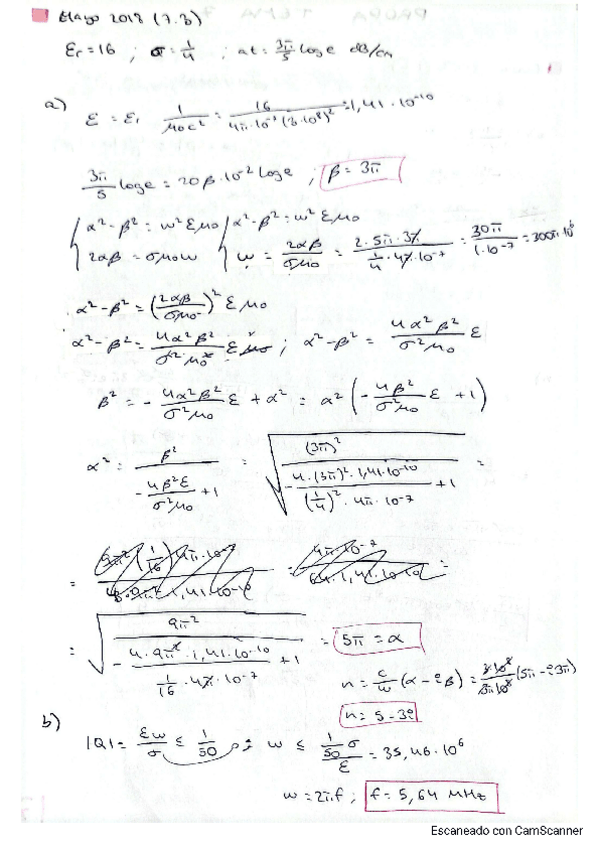 Mayo 2018 (7.3)
Er = 16 ; σ = 1/4 ; at = 3π/5 log e dB/cm
a) ε = εr 1/(μ0c²) = 16/(4π·10⁻⁷(3·10⁸)²) = 1,41·10⁻¹⁰
3π/5 log e = 20β·10⁻² log e ; β = 3π
{α²-β² = w²εμ0 {α²-β² = w²εμ0
2αβ = σμ0w w = 2αβ/(σμ0) = 2·5π·3π/(1/4·4π·10⁻⁷) = 30π/(1·10⁻⁷) = 300π·10⁶
α²-β² = (2αβ/(σμ0))² εμ0
α²-β² = 4α²β²/(σ²μ0²) εμ0 ; α²-β² = 4α²β²/(σ²μ0) ε
β² = - 4α²β²/(σ²μ0) ε + α² = α² (- 4β²/(σ²μ0) ε + 1)
α² = β²/(- 4β²ε/(σ²μ0) + 1) = √((3π)²/(- 4·(3π)²·1,41·10⁻¹⁰/((1/4)²·4π·10⁻⁷) + 1)) =
= √(9π²/(- 4·9π²·1,41·10⁻¹⁰/(1/16·4π·10⁻⁷) + 1)) = 5π = α
n = c/w (α - iβ) = 3·10⁸/(3π·10⁸) (5π - i3π)
n = 5 - 3i
b) |Q| = εw/σ ≤ 1/50 ; w ≤ 1/50 σ/ε = 35,46·10⁶
w = 2πf ; f = 5,64 MHz
Escaneado con CamScanner